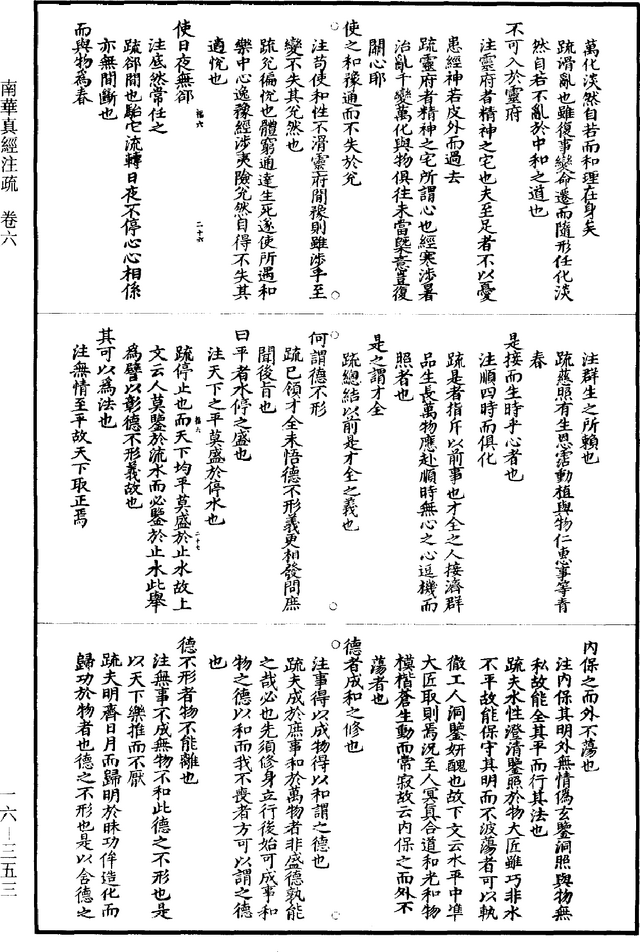 南華真經注疏　卷六
萬化淡然自若而和理在身矣
疏滑亂也雖復事變命遷而隨形任化淡
然自若不亂於中和之道也
不可入於靈府
注靈府者精神之宅也夫至足者不以憂
患經神若皮外而過去
疏靈府者精神之宅所謂心也經寒涉暑
治亂千變萬化與物俱往未當槩意豈復
關心耶
使之和豫通而不失於兌
注苟使和性不滑靈府閒豫則雖涉乎至
變不失其兌然也
疏兌徧悅也體窮通達生死遂使所遇和
樂中心逸豫經涉夷險兌然自得不失其
適悅也
使日夜無郤
注𣅜然常任之
疏郤間也駘它流轉日夜不停心心相係
亦無間斷也
而與物為春
注群生之所賴也
疏慈照有生恩霑動植與物仁惠事等青
春
是接而生時乎心者也
注順四時而俱化
疏是者指斥以前事也才全之人接濟群
品生長萬物應赴順時無心之心逗機而
照者也
是之謂才全
疏總結以前是才全之義也
何謂德不形
疏已領才全未悟德不形義更相發問庶
聞後旨也
曰平者水停之盛也
注天下之平莫盛於停水也
疏停止也而天下均平莫盛於止水故上
文云人莫鑒於流水而必鑒於止水此舉
為譬以彰德不形義故也
其可以為法也
注無情至平故天下取正焉
內保之而外不蕩也
注內保其明外無情偽玄鑒洞照與物無
私故能全其平而行其法也
疏夫水性澄清鑒照於物大匠雖巧非水
不平故能保守其明而不波蕩者可以軌
徹工人洞鑒妍醜也故下文云水平中準
大匠取則焉況至人冥真合道和光和物
模楷蒼生動而常寂故云內保之而外不
蕩者也
德者成和之修也
注事得以成物得以和謂之德也
疏夫成於庶事和於萬物者非盛德孰能
之哉必也先須修身立行後始可成事和
物之德以和而我不喪者方可以謂之德
也
德不形者物不能離也
注無事不成無物不和此德之不形也是
以天下樂推而不厭
疏夫明齊日月而歸明於昧功侔造化而
歸功於物者也德之不形也是以含德之
一六—三五三